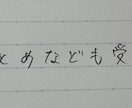 とめなども受